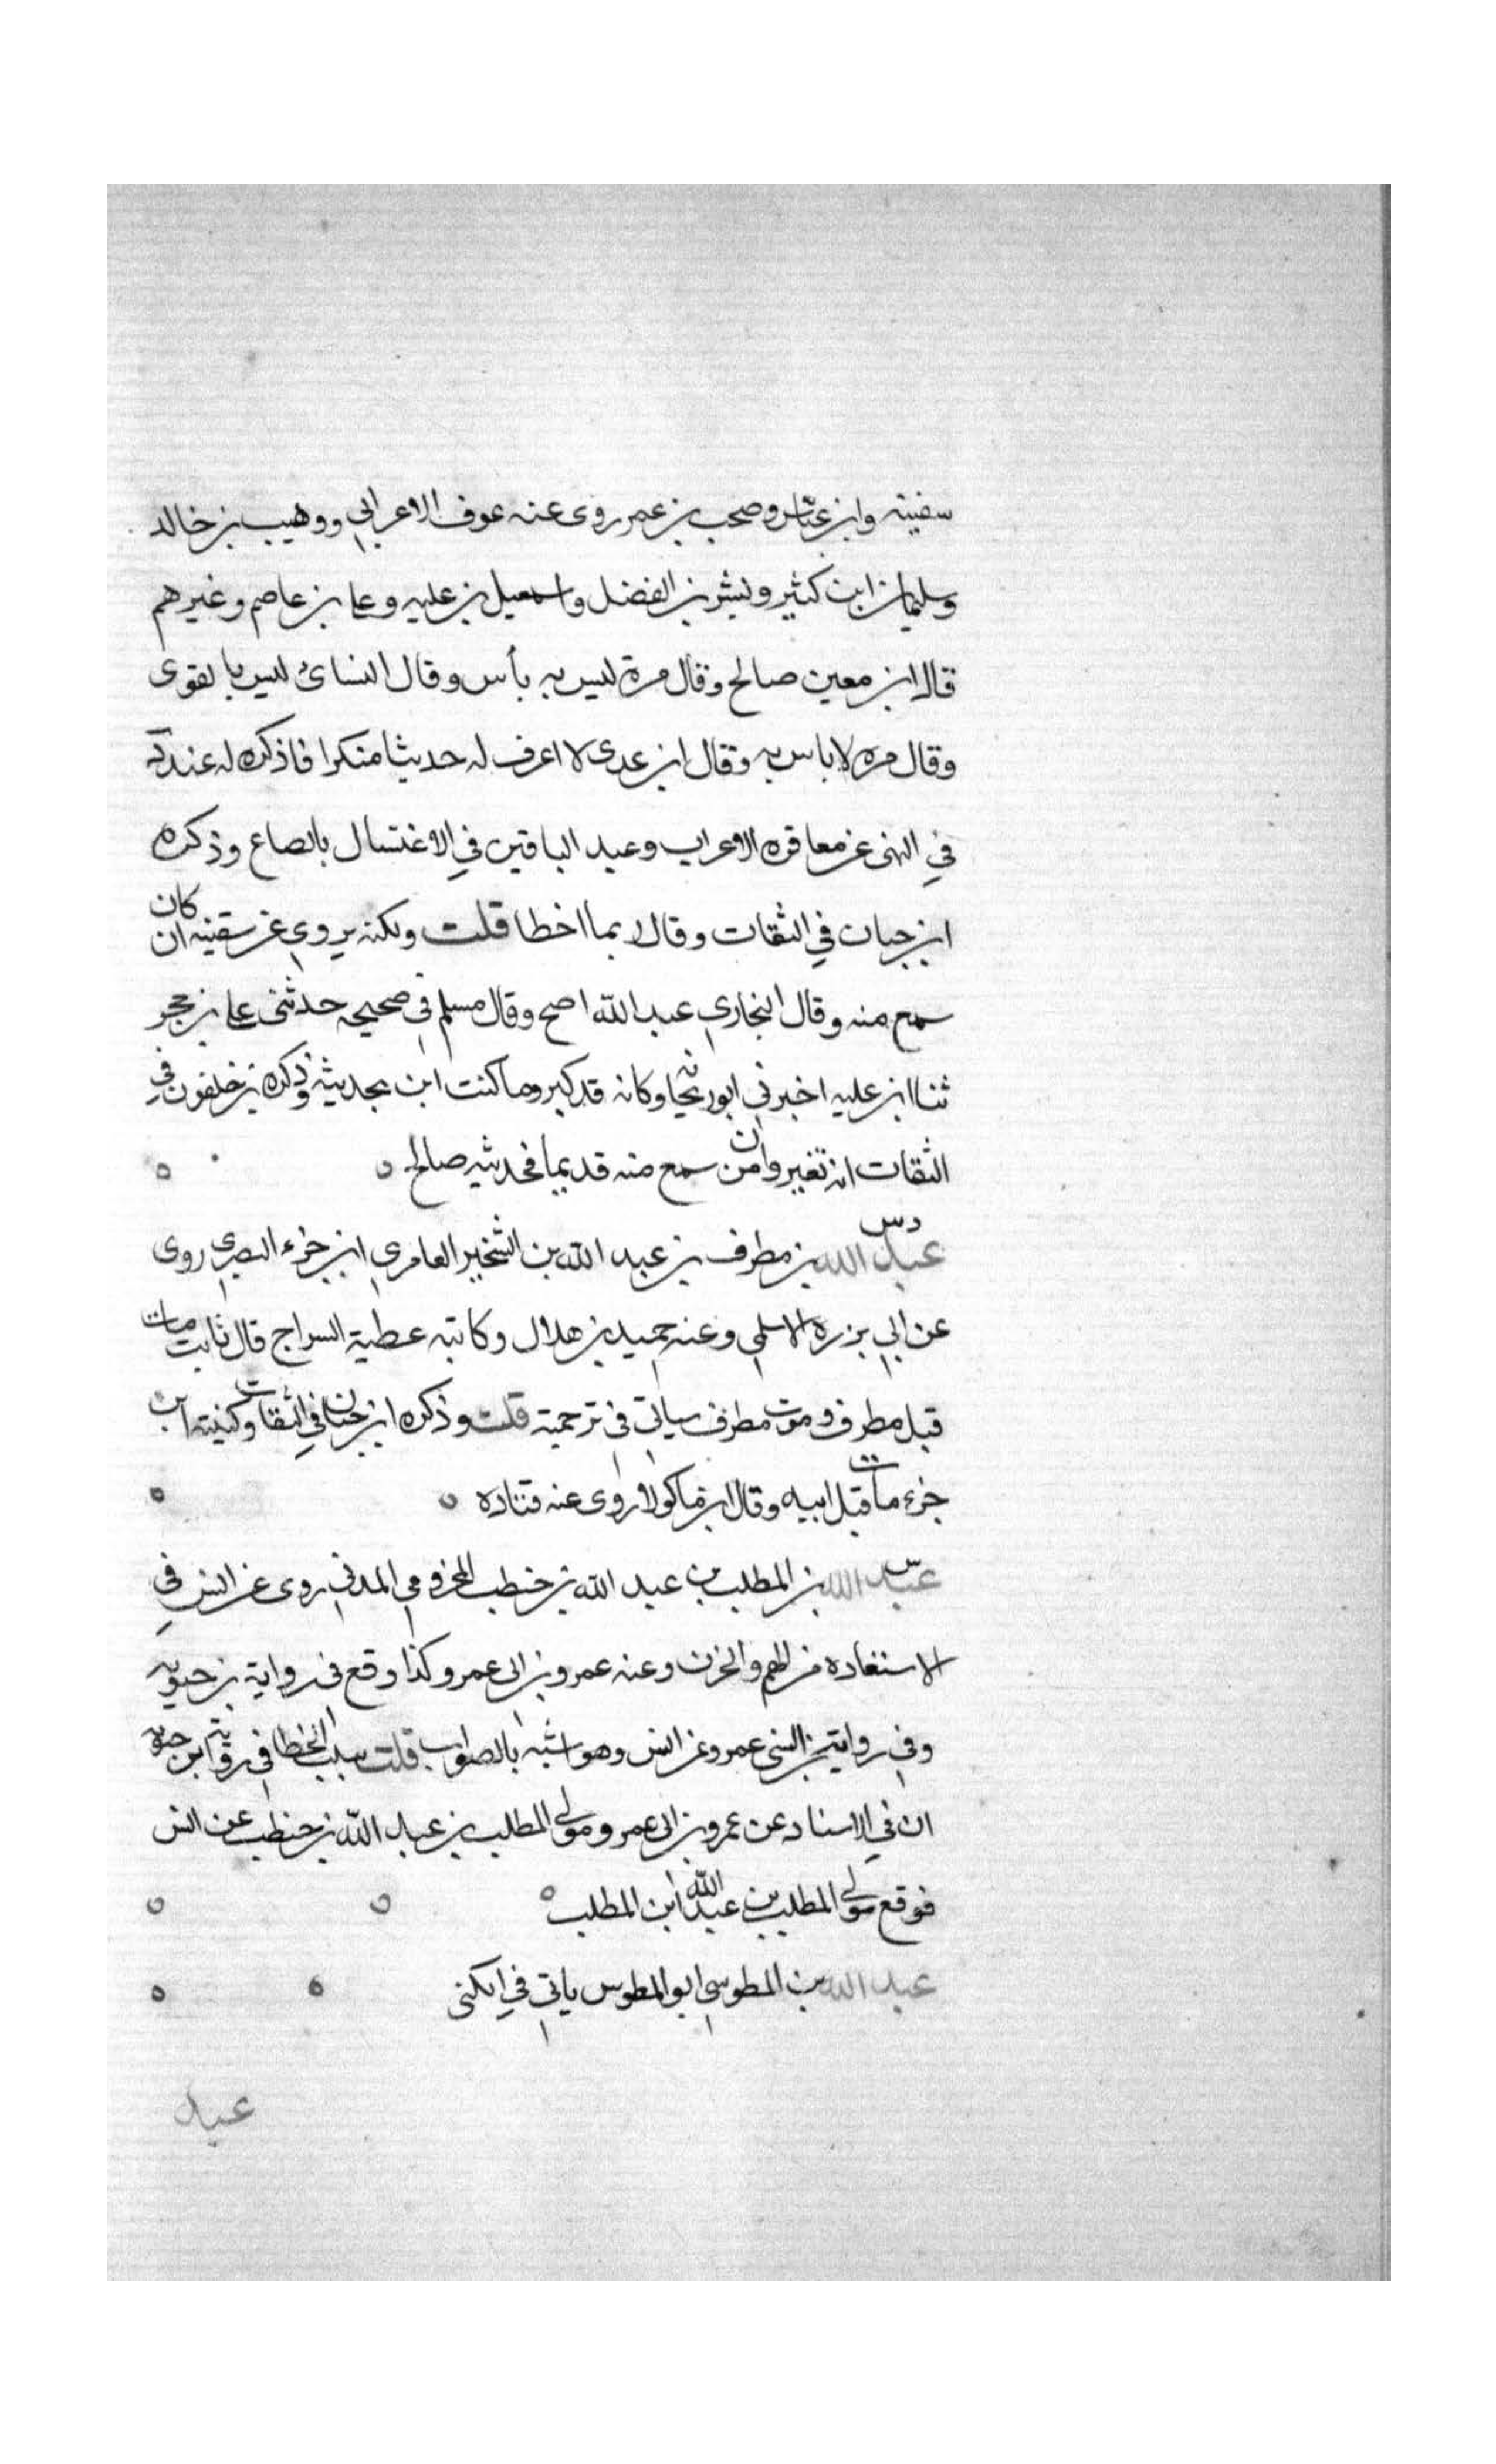 سفينة وابن عباس وصحب بن عمر روى عنه عوف الاعرابي ووهيب بن خالد
وسليمان ابن كثير وبشر بن الفضل واسمعيل بن علية وعلي بن عاصم وغيرهم
قال ابن معين صالح وقال مرة ليس به بأس وقال النسائ ليس بالقوى
وقال مره لا باس به وقال ابن عدى لا اعرف له حديثا منكرا فاذكره له عندت
في النهى عن معاقره الاعراب وعبد الباقين في الاغتسال بالصاع وذكره
ابن حبان في الثقات وقال ربما اخطا قلت ولكنه يروى عن سفينه ان كان
سمع منه وقال البخاري عبد الله اصح وقال مسلم في صحيحه حدثنى علي بن حجر
ثنا ابن عليه اخبرني ابو ريحانة وكان قد كبر وما كنت اثق بحديثه وذكره بن خلفون في
الثقات انه تغير وان من سمع منه قديما فحديثه صالح
دس
عبد الله بن مطرف بن عبد الله بن الشخير العامري ابن جزء البصري روى
عن ابي برزة الاسلمي وعنه حميد بن هلال وكاتبه عطية السراج قال ثابت مات
قبل مطرف وموت مطرف سياتي في ترجمته قلت وذكره ابن حبان في الثقات وكنيته ابن
جزء مات قبل ابيه وقال ابن ماكولا روى عنه قتاده
س
عبد الله بن المطلب بن عبد الله بن حنطب المخزومي المدني روى عن انس في
الاستعاده من الهم والحزن وعنه عمرو بن ابى عمرو وكذا وقع فى رواية بن حيويه
وفى رواية بن السنى عمرو عن انس وهو اشبه بالصواب قلت سبب الخطا في رواية ابن حيويه
ان في الاسناد عن عمرو بن ابى عمرو مولى المطلب بن عبد الله بن حنطب عن انس
فوقع مولى المطلب بن عبد الله ابن المطلب
عبد الله بن المطوسي ابو المطوس ياتي في الكنى
عبد